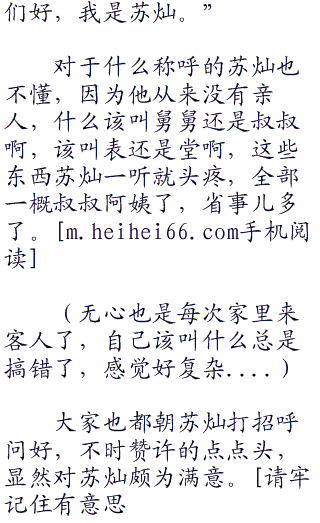 们好，我是苏灿。”
对于什么称呼的苏灿也
不懂，因为他从来没有亲
人，什么该叫舅舅还是叔叔
啊，该叫表还是堂啊，这些
东西苏灿一听就头疼，全部
一概叔叔阿姨了，省事儿多
了。[m.heihei66.com手机阅
读]
（无心也是每次家里来
客人了，自己该叫什么总是
搞错了，感觉好复杂....）
大家也都朝苏灿打招呼
问好，不时赞许的点点头，
显然对苏灿颇为满意。[请牢
记住有意思